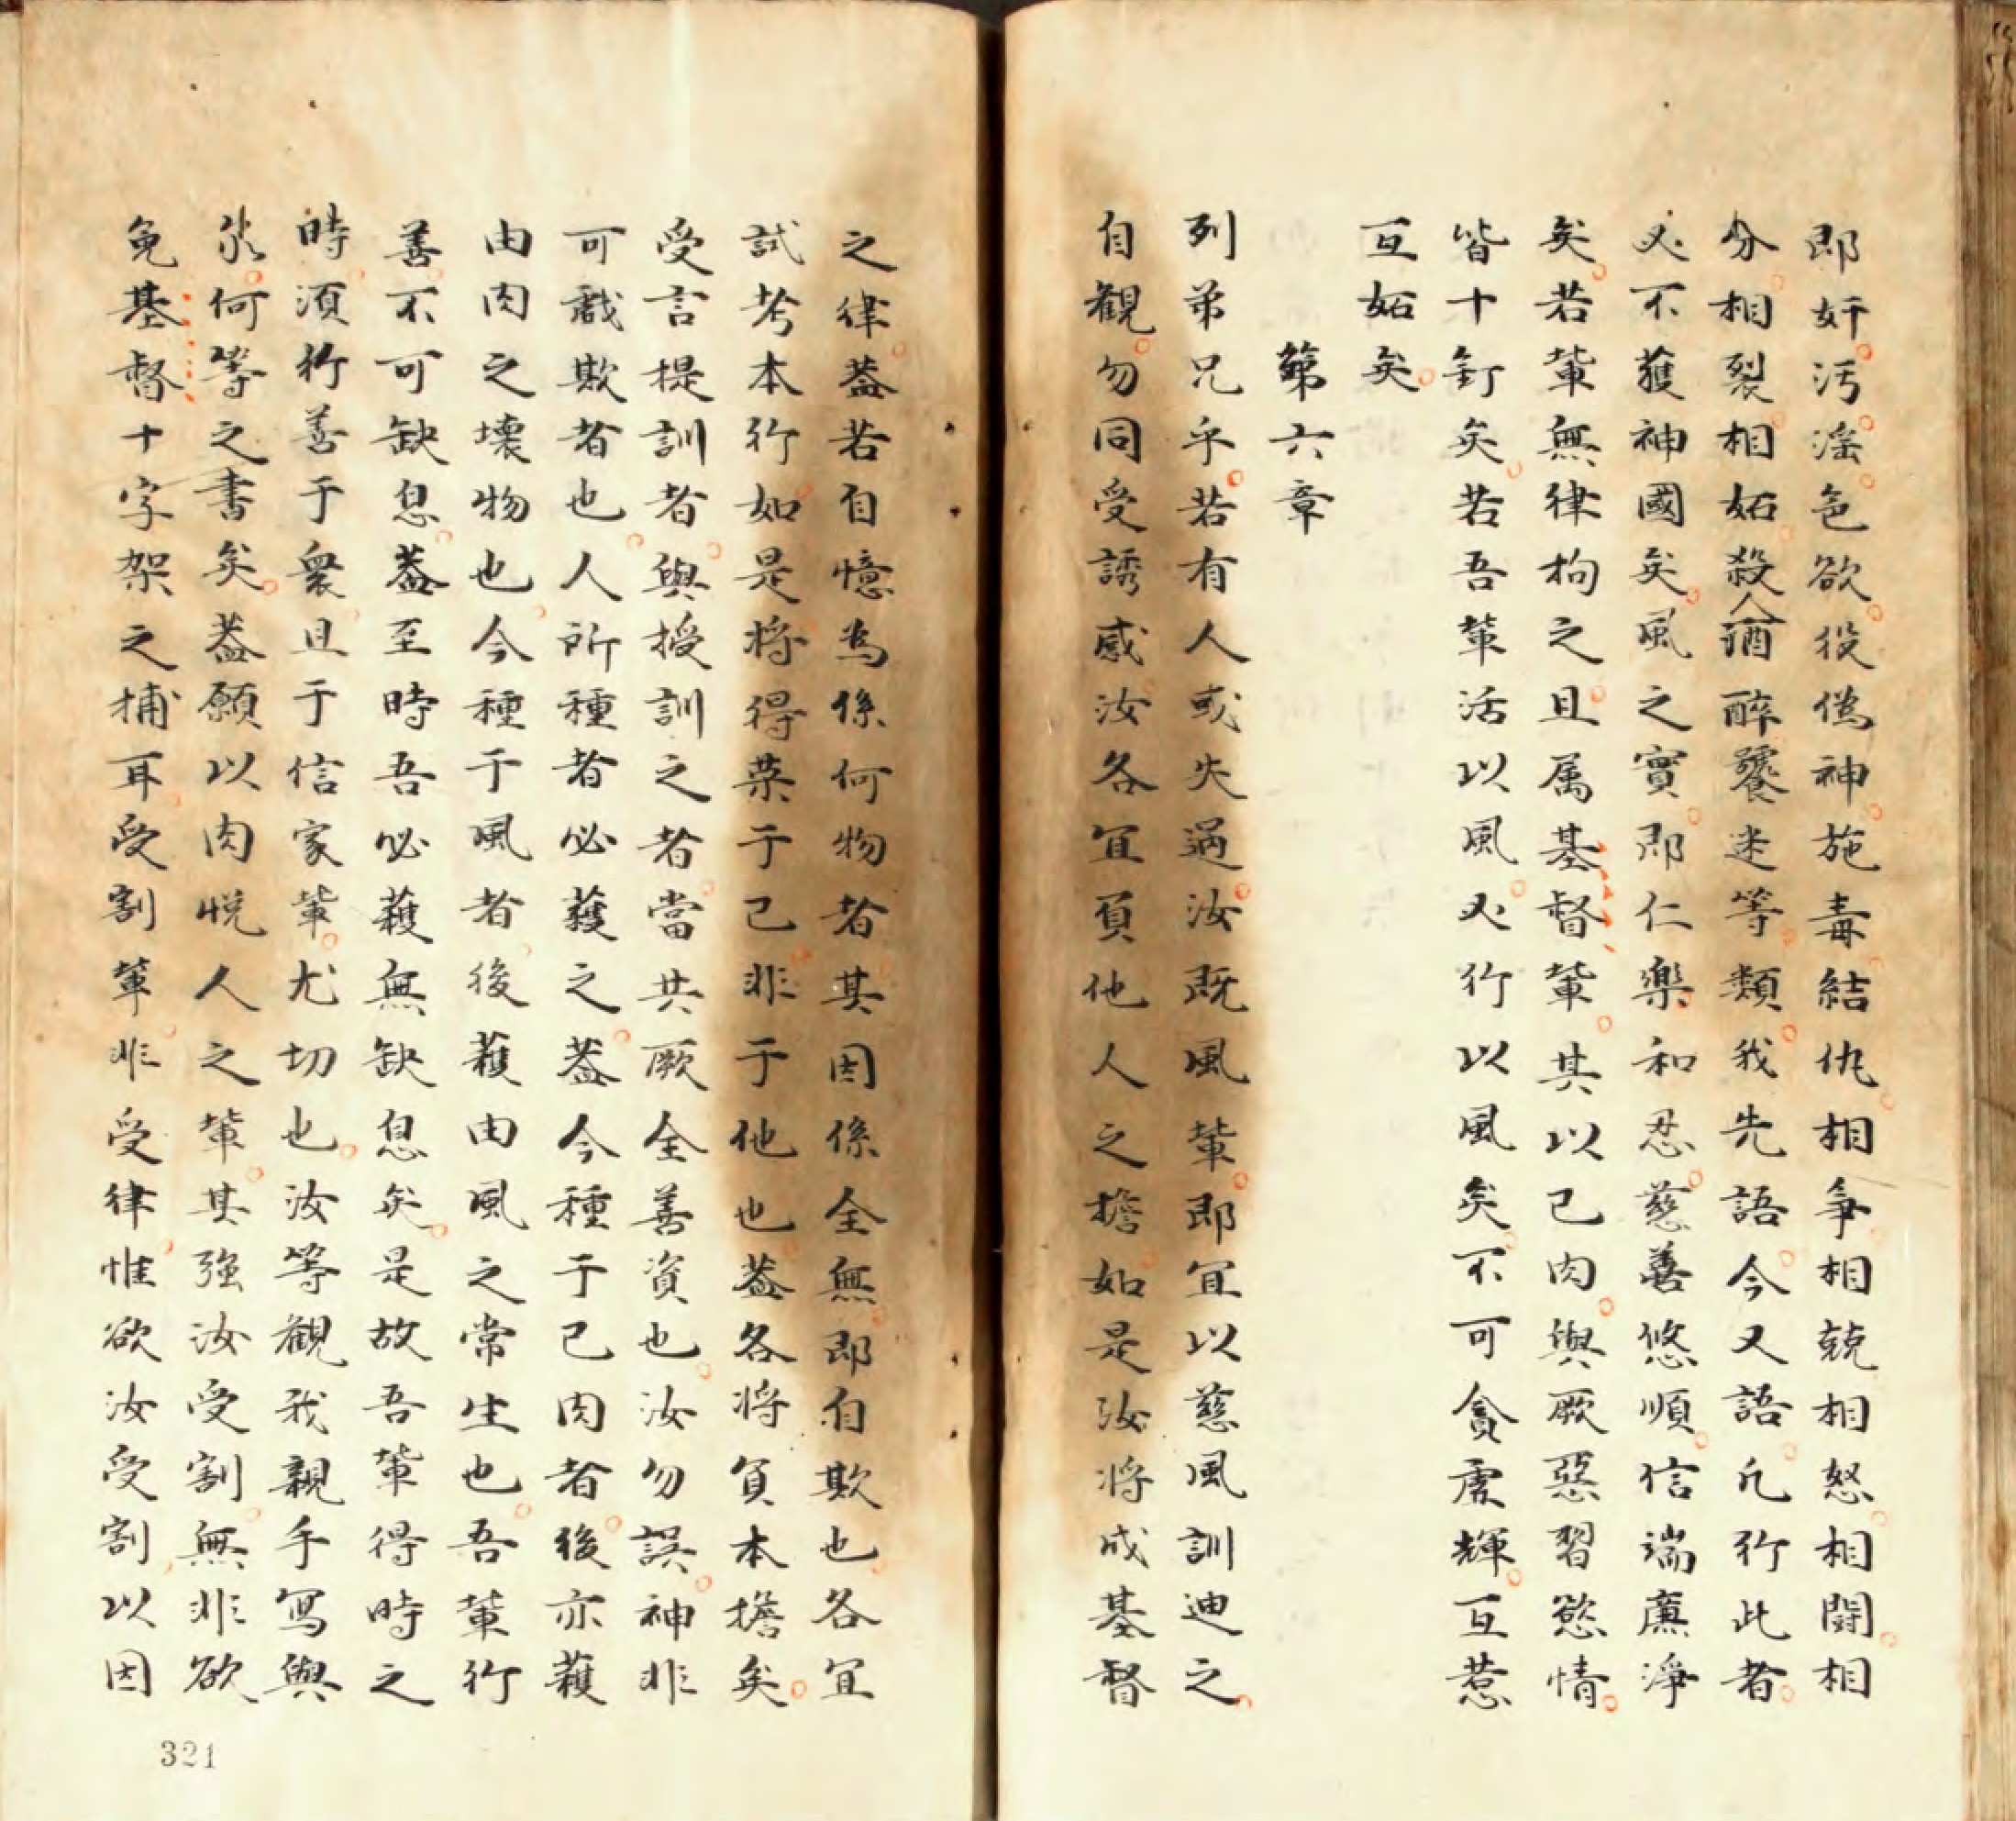 即奸汚滛色欲役偽神施毒結仇相爭相競相怒相鬪相
分相裂相妬殺人酒醉饕迷等類我先語今又語凢行此者
必不獲神國矣風之實即仁樂和忍慈善悠順信端廉淨
矣若軰無律拘之且属基督軰其以己肉與厥惡習慾情
皆十釘矣若吾軰活以風必行以風矣不可貪虛輝互惹
互妬矣
第六章
列弟兄乎若有人或失過汝既風軰即宜以慈風訓迪之
自觀勿同受誘感汝各宜負他人之擔如是汝将成基督
之律葢若自憶為係何物者其因係全無即自欺也各宜
試考本行如是将得荣于己非于他也葢各将負本擔矣
受言提訓者與授訓之者當共厥全善資也汝勿誤神非
可戲欺者也人所種者必蒦之葢今種于己肉者後亦蒦
由肉之壊物也今種于風者後蒦由風之常生也吾軰行
善不可缺息葢至時吾必蒦無缺息矣是故吾軰得時之
時須行善于衆且于信家軰尤切也汝等觀我親手寫與
尓何等之書矣葢願以肉悅人之軰其強汝受割無非欲
免基督十字架之捕耳受割軰非受律惟欲汝受割以因
321